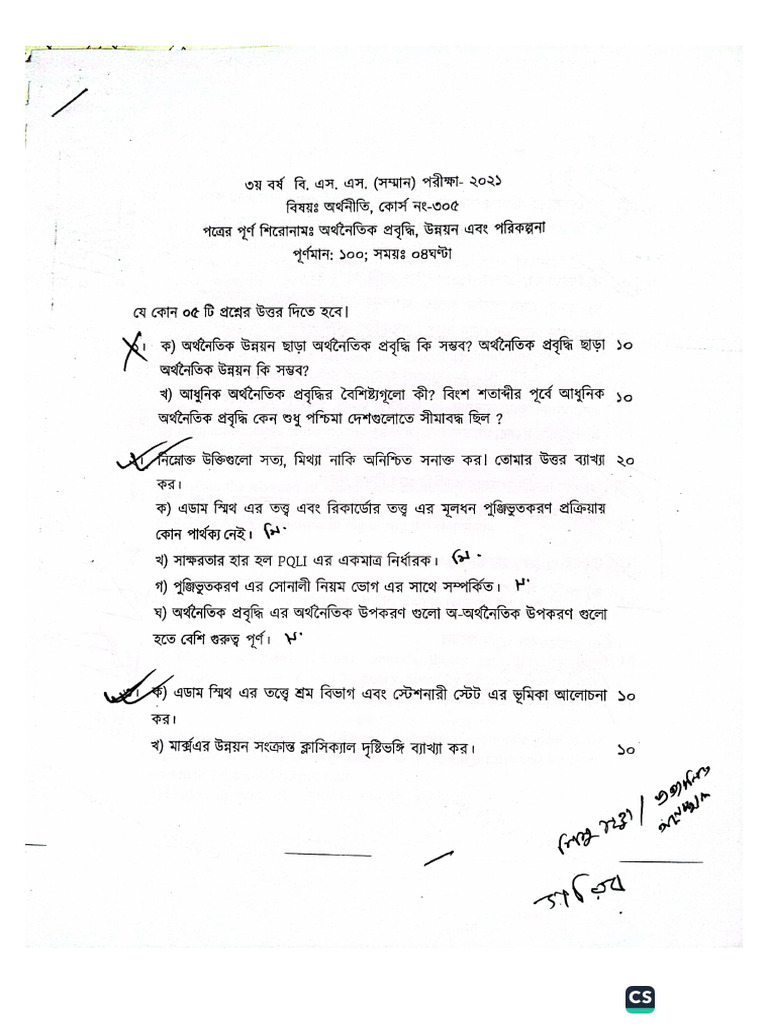 ৩য় বর্ষ বি. এস. এস. (সম্মান) পরীক্ষা- ২০২১
বিষয়ঃ অর্থনীতি, কোর্স নং-৩০৫
পত্রের পূর্ণ শিরোনামঃ অর্থনৈতিক প্রবৃদ্ধি, উন্নয়ন এবং পরিকল্পনা
পূর্ণমান: ১০০; সময়ঃ ০৪ঘণ্টা
যে কোন ০৫ টি প্রশ্নের উত্তর দিতে হবে।
১। ক) অর্থনৈতিক উন্নয়ন ছাড়া অর্থনৈতিক প্রবৃদ্ধি কি সম্ভব? অর্থনৈতিক প্রবৃদ্ধি ছাড়া ১০
অর্থনৈতিক উন্নয়ন কি সম্ভব?
খ) আধুনিক অর্থনৈতিক প্রবৃদ্ধির বৈশিষ্ট্যগুলো কী? বিংশ শতাব্দীর পূর্বে আধুনিক ১০
অর্থনৈতিক প্রবৃদ্ধি কেন শুধু পশ্চিমা দেশগুলোতে সীমাবদ্ধ ছিল ?
২। নিম্নোক্ত উক্তিগুলো সত্য, মিথ্যা নাকি অনিশ্চিত সনাক্ত কর। তোমার উত্তর ব্যাখ্যা ২০
কর।
ক) এডাম স্মিথ এর তত্ত্ব এবং রিকার্ডোর তত্ত্ব এর মূলধন পুঞ্জিভুতকরণ প্রক্রিয়ায়
কোন পার্থক্য নেই। মি.
খ) সাক্ষরতার হার হল PQLI এর একমাত্র নির্ধারক। মি.
গ) পুঞ্জিভুতকরণ এর সোনালী নিয়ম ভোগ এর সাথে সম্পর্কিত। স.
ঘ) অর্থনৈতিক প্রবৃদ্ধি এর অর্থনৈতিক উপকরণ গুলো অ-অর্থনৈতিক উপকরণ গুলো
হতে বেশি গুরুত্ব পূর্ণ। স.
৩। ক) এডাম স্মিথ এর তত্ত্বে শ্রম বিভাগ এবং স্টেশনারী স্টেট এর ভূমিকা আলোচনা ১০
কর।
খ) মার্ক্সএর উন্নয়ন সংক্রান্ত ক্লাসিক্যাল দৃষ্টিভঙ্গি ব্যাখ্যা কর। ১০
CS